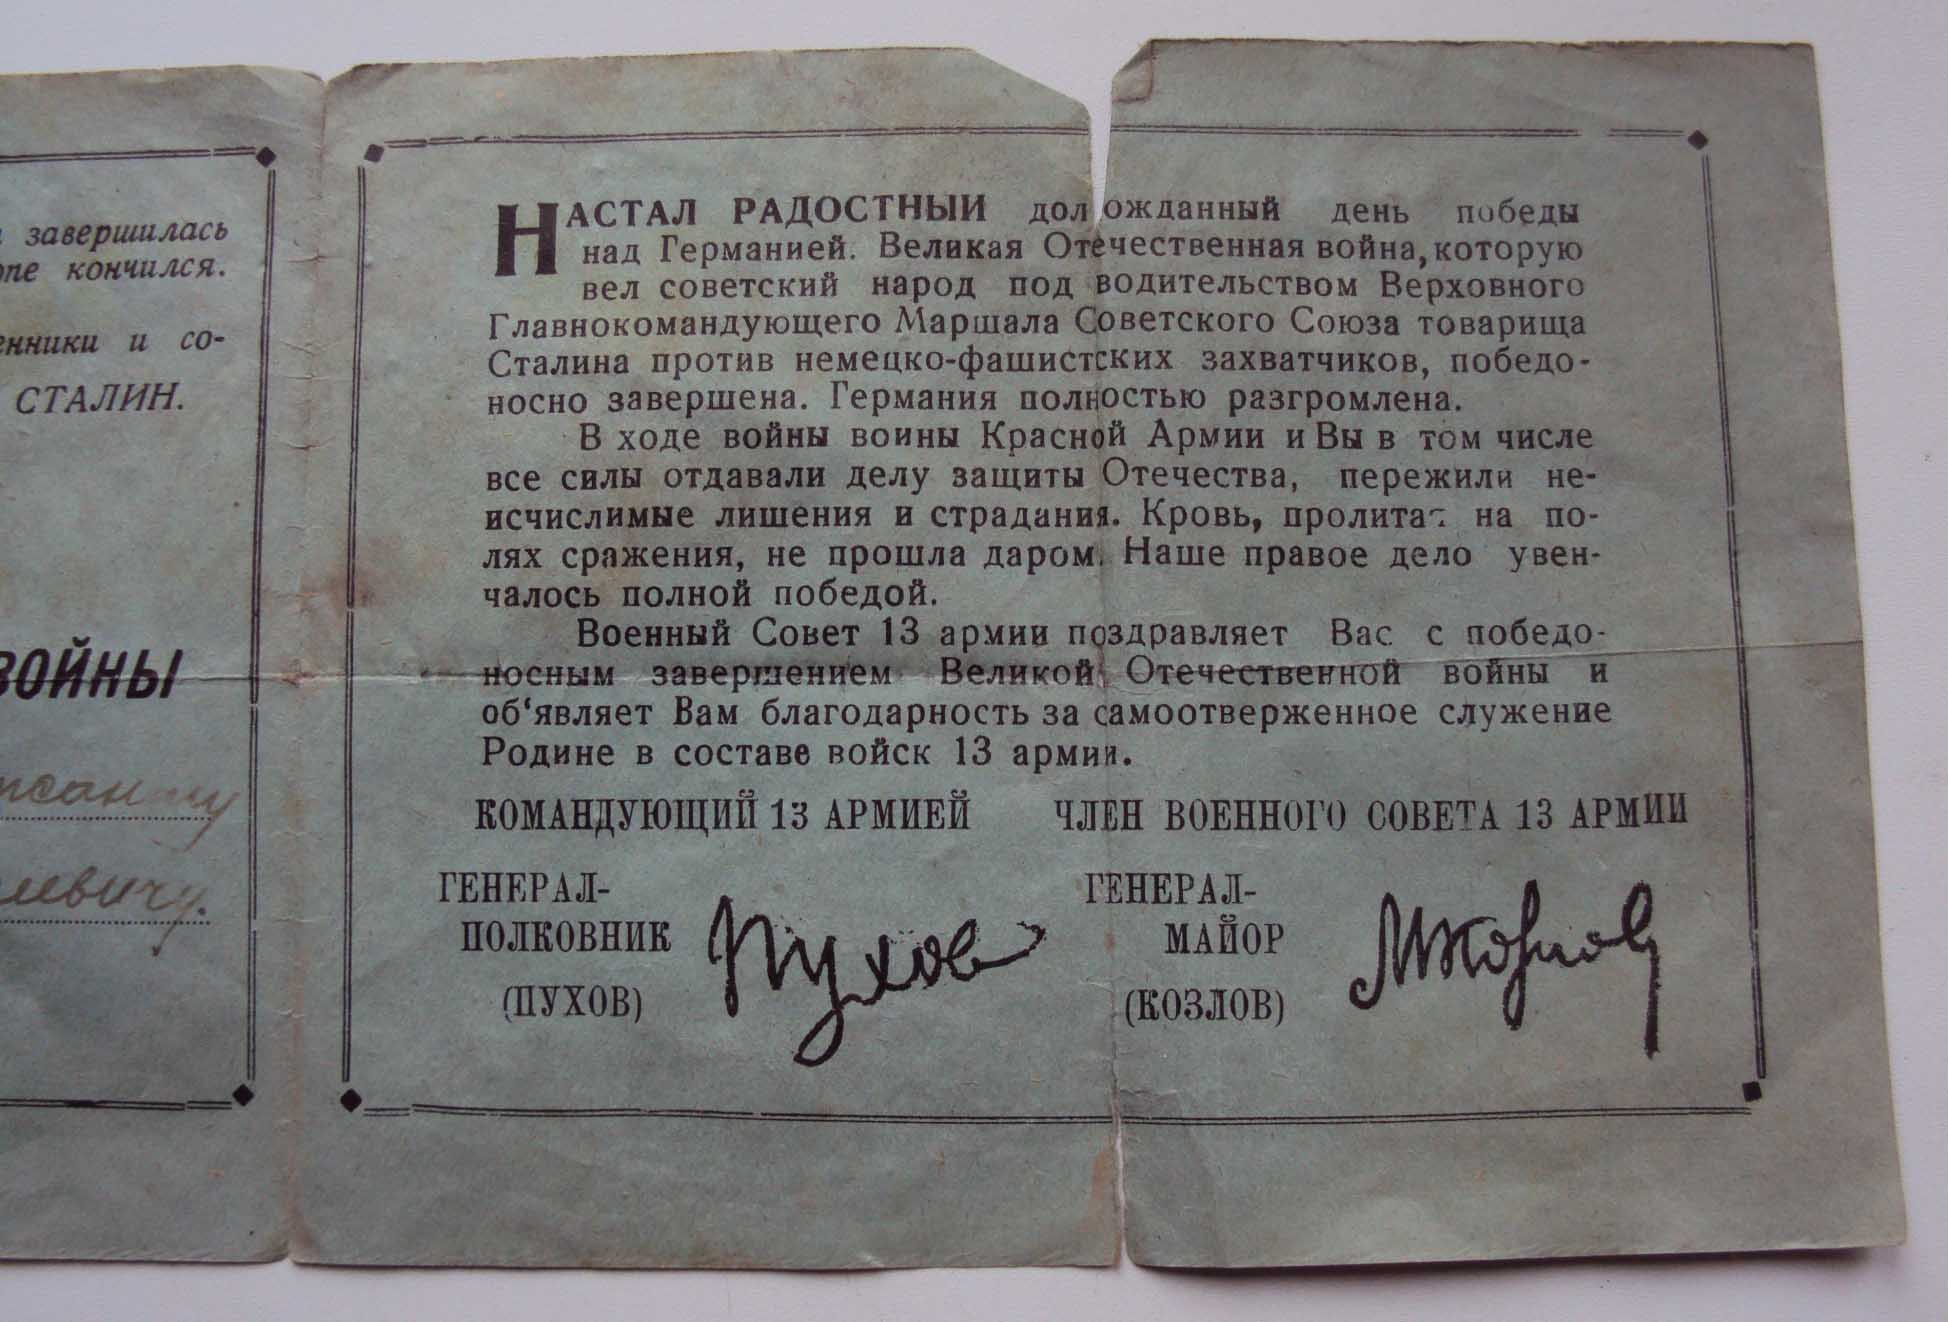 завершилась
кончился.
и со-
СТАЛИН.
ВОЙНЫ
НАСТАЛ РАДОСТНЫЙ долгожданный день победы
над Германией. Великая Отечественная война, которую
вел советский народ под водительством Верховного
Главнокомандующего Маршала Советского Союза товарища
Сталина против немецко-фашистских захватчиков, победо-
носно завершена. Германия полностью разгромлена.
В ходе войны воины Красной Армии и Вы в том числе
все силы отдавали делу защиты Отечества, пережили не-
исчислимые лишения и страдания. Кровь, пролитая на по-
лях сражения, не прошла даром. Наше правое дело увен-
чалось полной победой.
Военный Совет 13 армии поздравляет Вас с победо-
носным завершением Великой Отечественной войны и
об‘являет Вам благодарность за самоотверженное служение
Родине в составе войск 13 армии.
КОМАНДУЮЩИЙ 13 АРМИЕЙ ЧЛЕН ВОЕННОГО СОВЕТА 13 АРМИИ
ГЕНЕРАЛ-
ПОЛКОВНИК
(ПУХОВ)
Пухов
ГЕНЕРАЛ-
МАЙОР
(КОЗЛОВ)
МКозлов